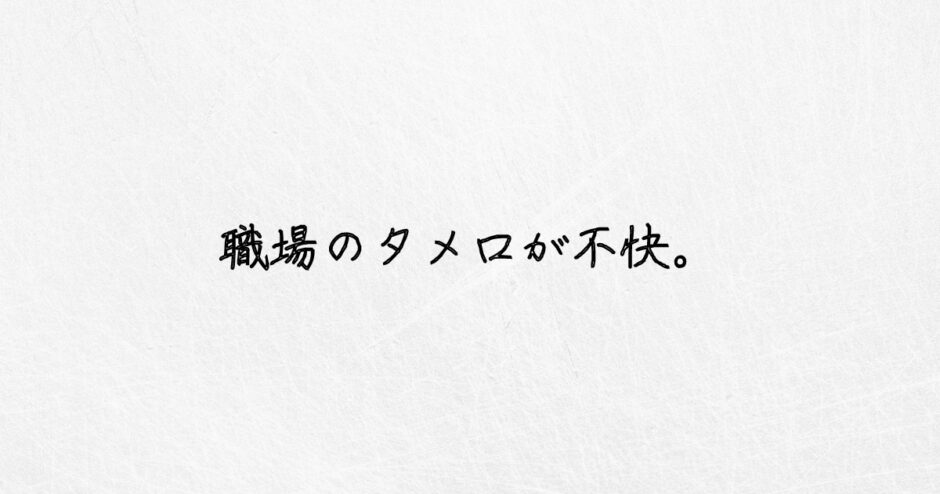 職場のタメ口が不快。